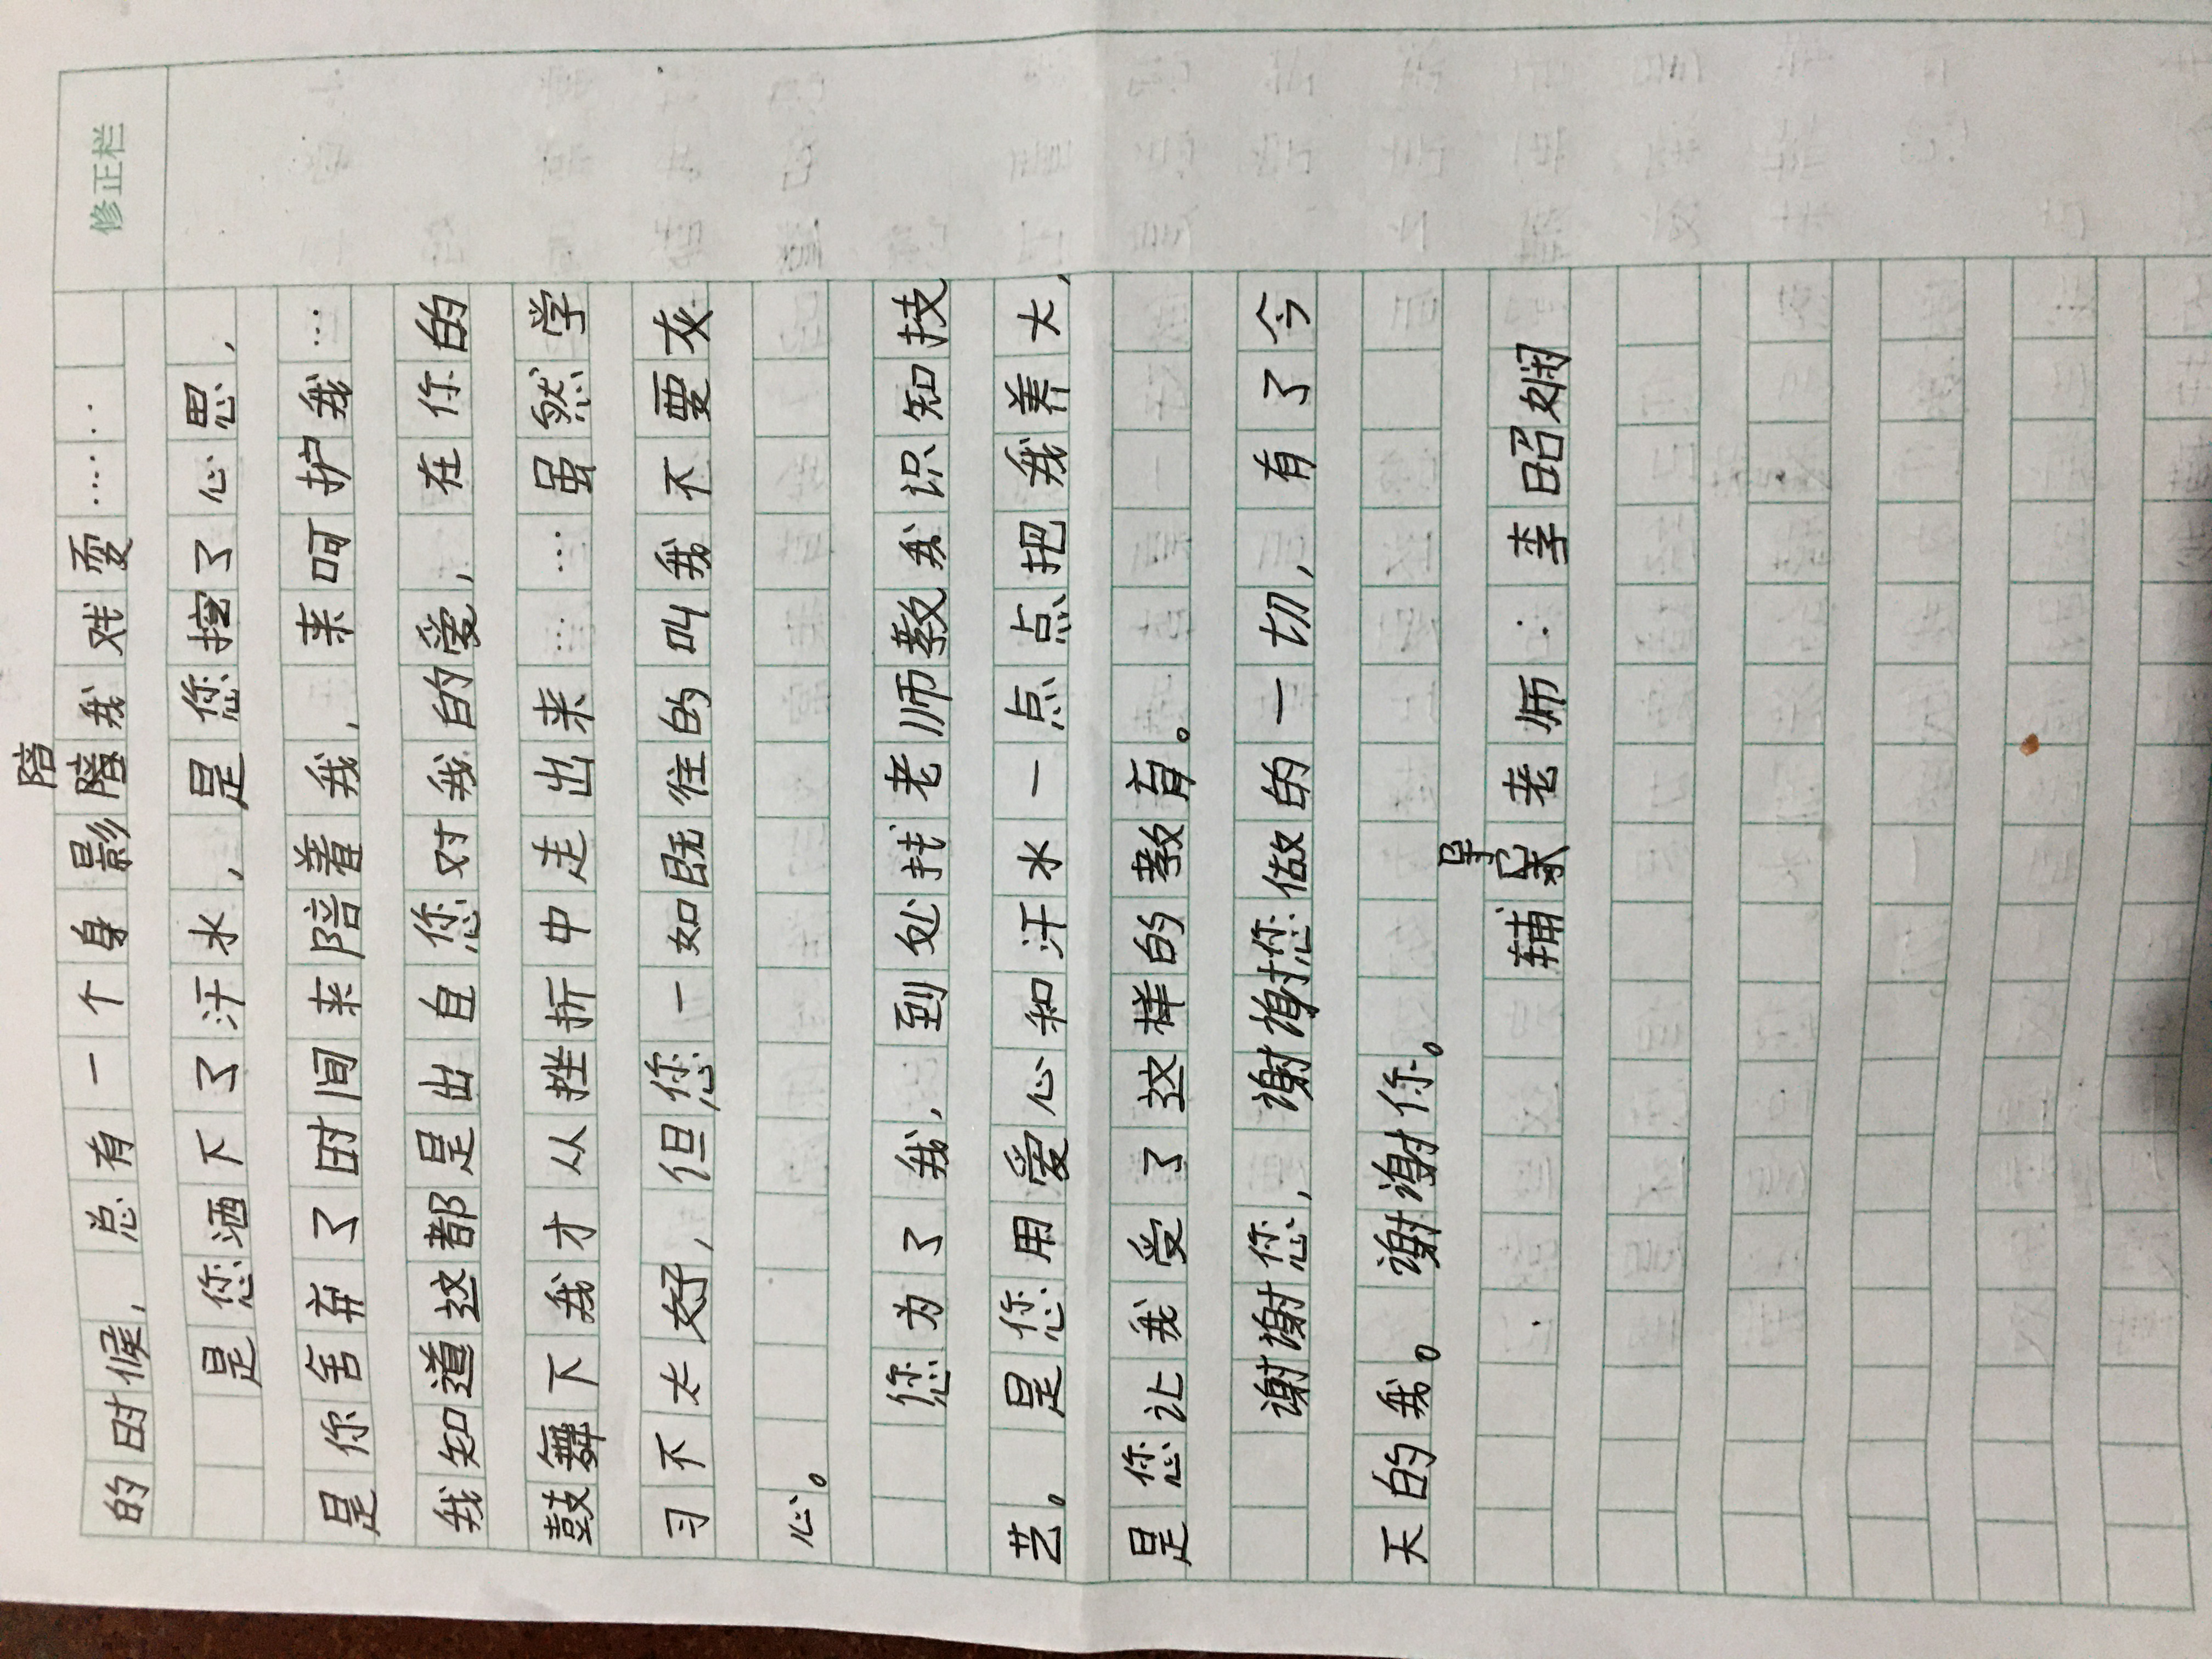 修正栏
的时候，总有一个身影陪我戏耍……
是您洒下了汗水，是您挖了心思，
是你舍弃了时间来陪着我，来呵护我…
我知道这都是出自您对我的爱，在你的
鼓舞下我才从挫折中走出来……虽然学
习不太好，但您一如既往的叫我不要灰
心。
您为了我，到处找老师教我识知技
艺。是您用爱心和汗水一点点把我养大，
是您让我受了这样的教育。
谢谢您，谢谢您做的一切，有了今
天的我。谢谢你。
辅导老师：李昭娴